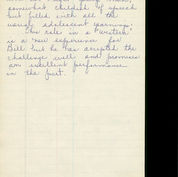 somewhat childish of speech
but filled with all the
usual adolescent yearnings.
This role in a western
is a new experience for
Bill but he has accepted the
challenge well and promises
an excellent performance
in the part.